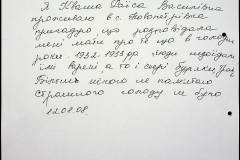 Я Кваша Раїса Василівна
проживаю в с. Новопетрівка
пригадую що розповідала
мені мати про те що в голодні
роки 1932-1933 рр люди недоїдали
їли варені, а то і сирі буряки,
Більше нічого не пам'ятаю
Страшного голоду не було
12.08.08.